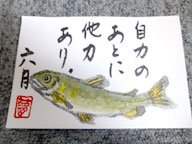 自力の
あとに
他力
あり.
六月